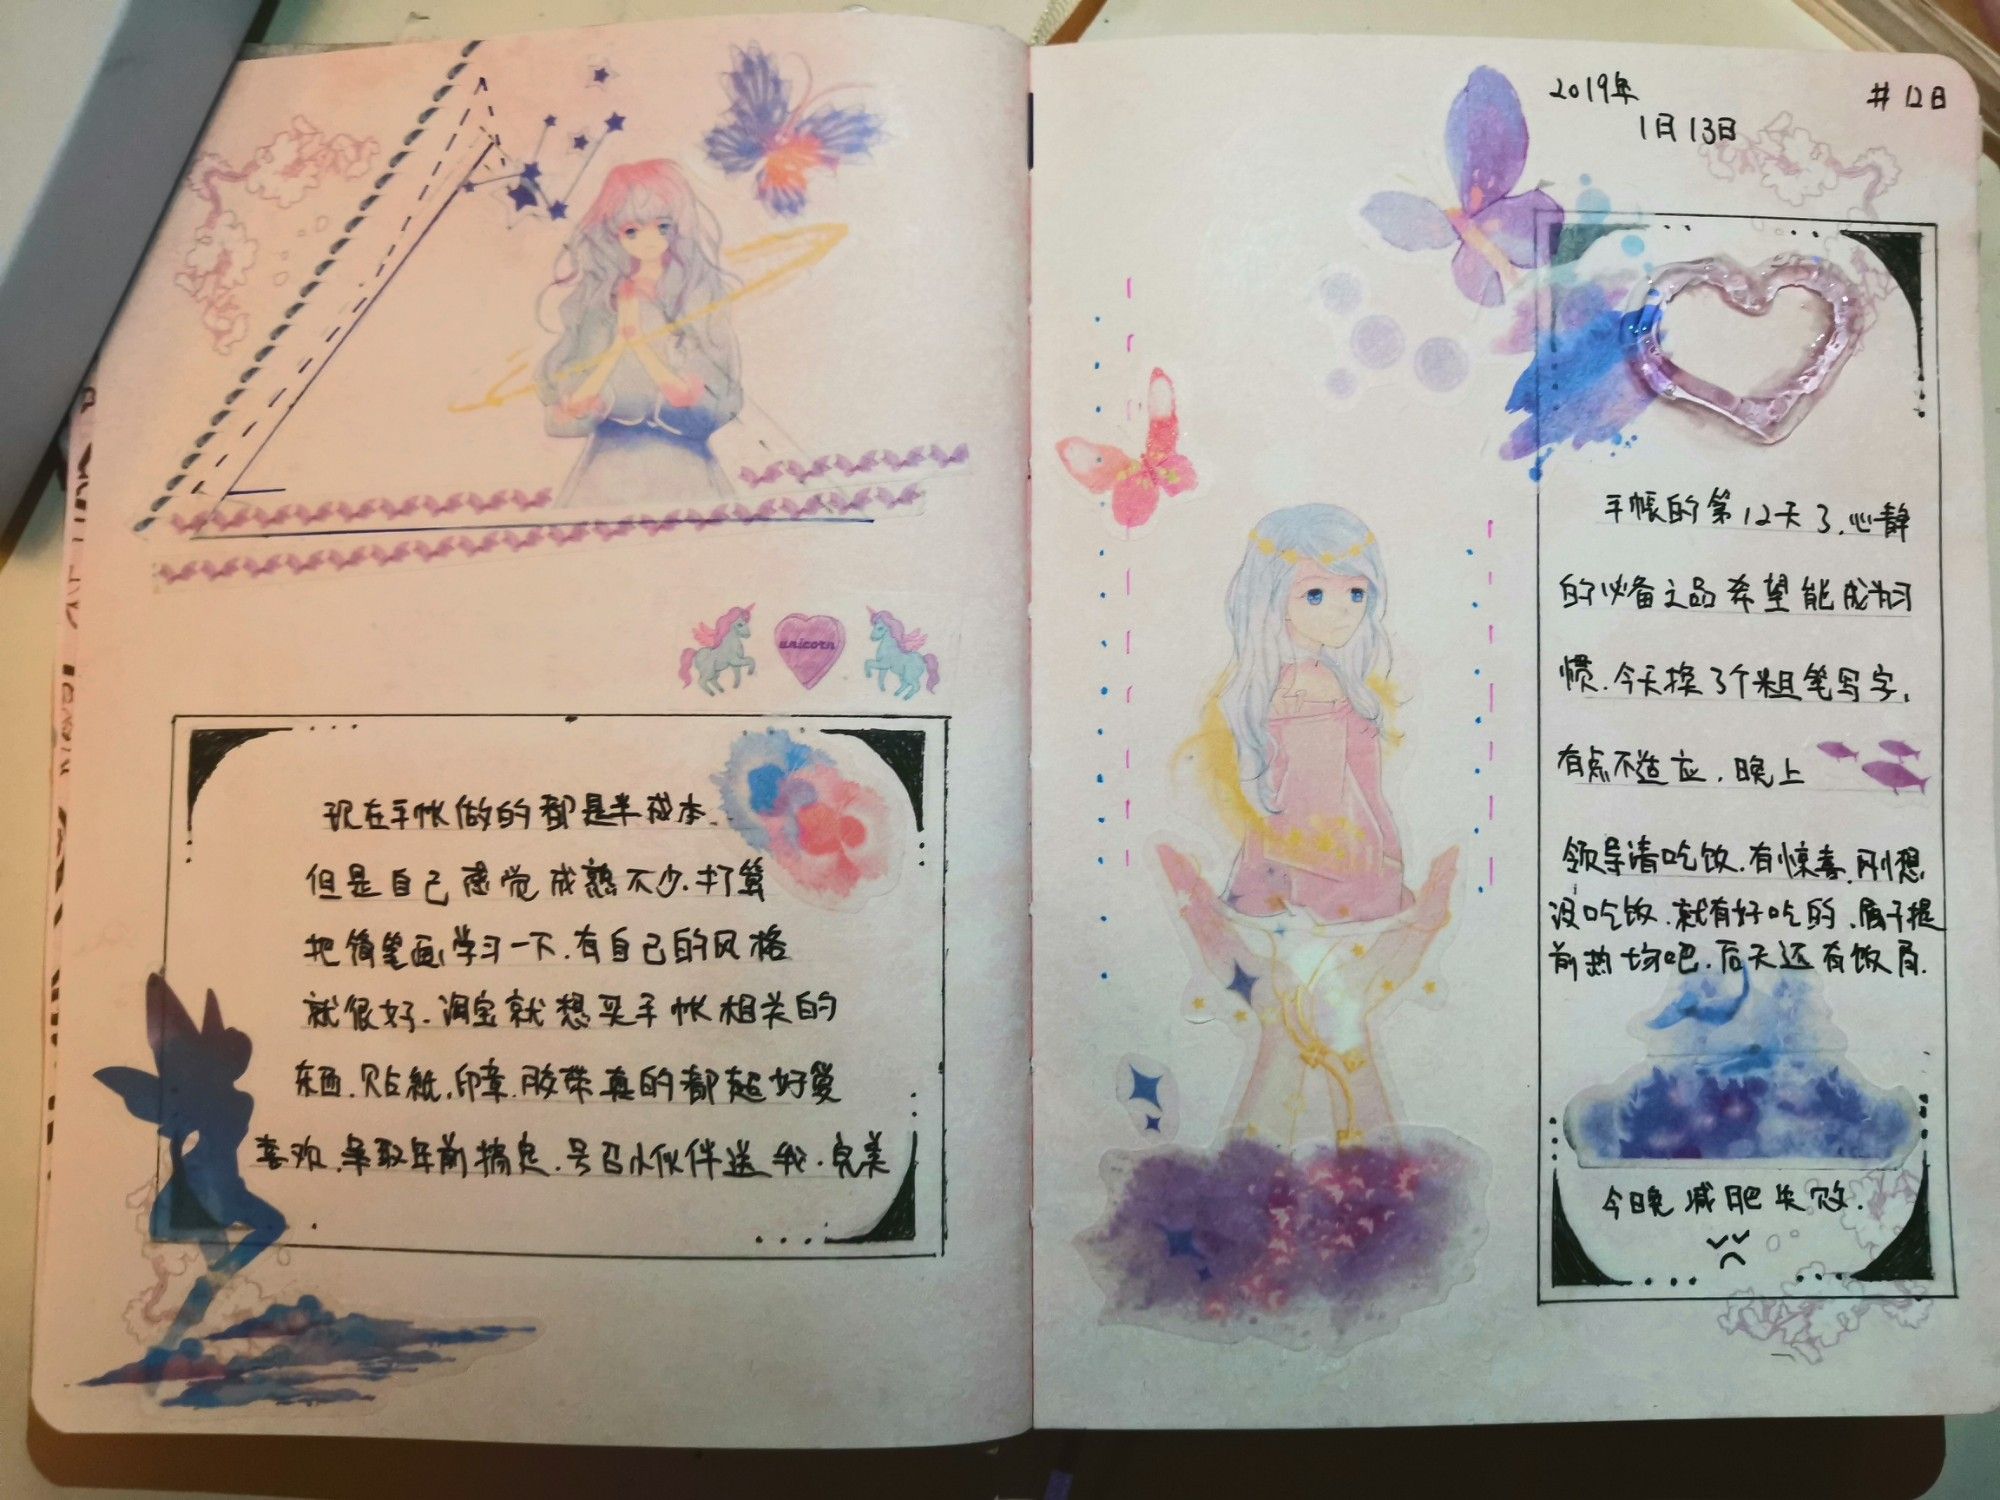 unicorn
现在手帐做的都是半成本.
但是自己感觉成熟不少.打算
把简笔画学习一下.有自己的风格
就很好.淘宝就想买手帐相关的
东西.贴紙.印章.胶带真的都超好爱
喜欢.争取年前搞定.号召小伙伴送我.完美
2019年
1月13日
#12日
手帐的第12天了.心静
的必备之品希望能成为习
惯.今天换了个粗笔写字.
有点不适应.晚上
领导请吃饭.有惊喜.刚想
没吃饭.就有好吃的.属于提
前热场吧.后天还有饭局.
今晚减肥失败.